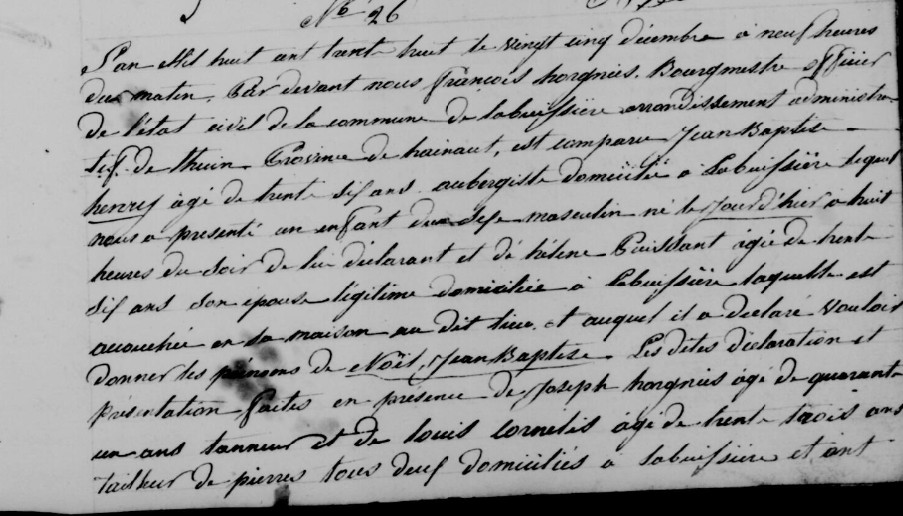 No 26
L'an Mil huit cent trente huit le vingt cinq décembre a neuf heures
du matin. Par devant nous françois horgnies. Bourgmestre officier
de l'état civil de la commune de labuissière arrondissement administra
tif. de thuin. Province de hainaut, est comparu Jean Baptise
henry âgé de trente six ans. aubergiste domicilié a Labuissière lequel
nous a presenté un enfant du sexe masculin né le jourd'hier a huit
heures du soir de lui déclarant et dé hélene Puissant âgée de trente
six ans son épouse légitime domiciliée a labuissière laquelle est
accouchée en sa maison au dit lieu. et auquel il a déclaré vouloir
donner les prénoms de Noël, Jean Baptise. Les dites déclaration et
présentation faites en presence de Joseph horgnies âgé de quarante
un ans tanneur et de louis cornelis âgé de trente trois ans
tailleur de pierres tous deux domiciliés a labuissière et ont